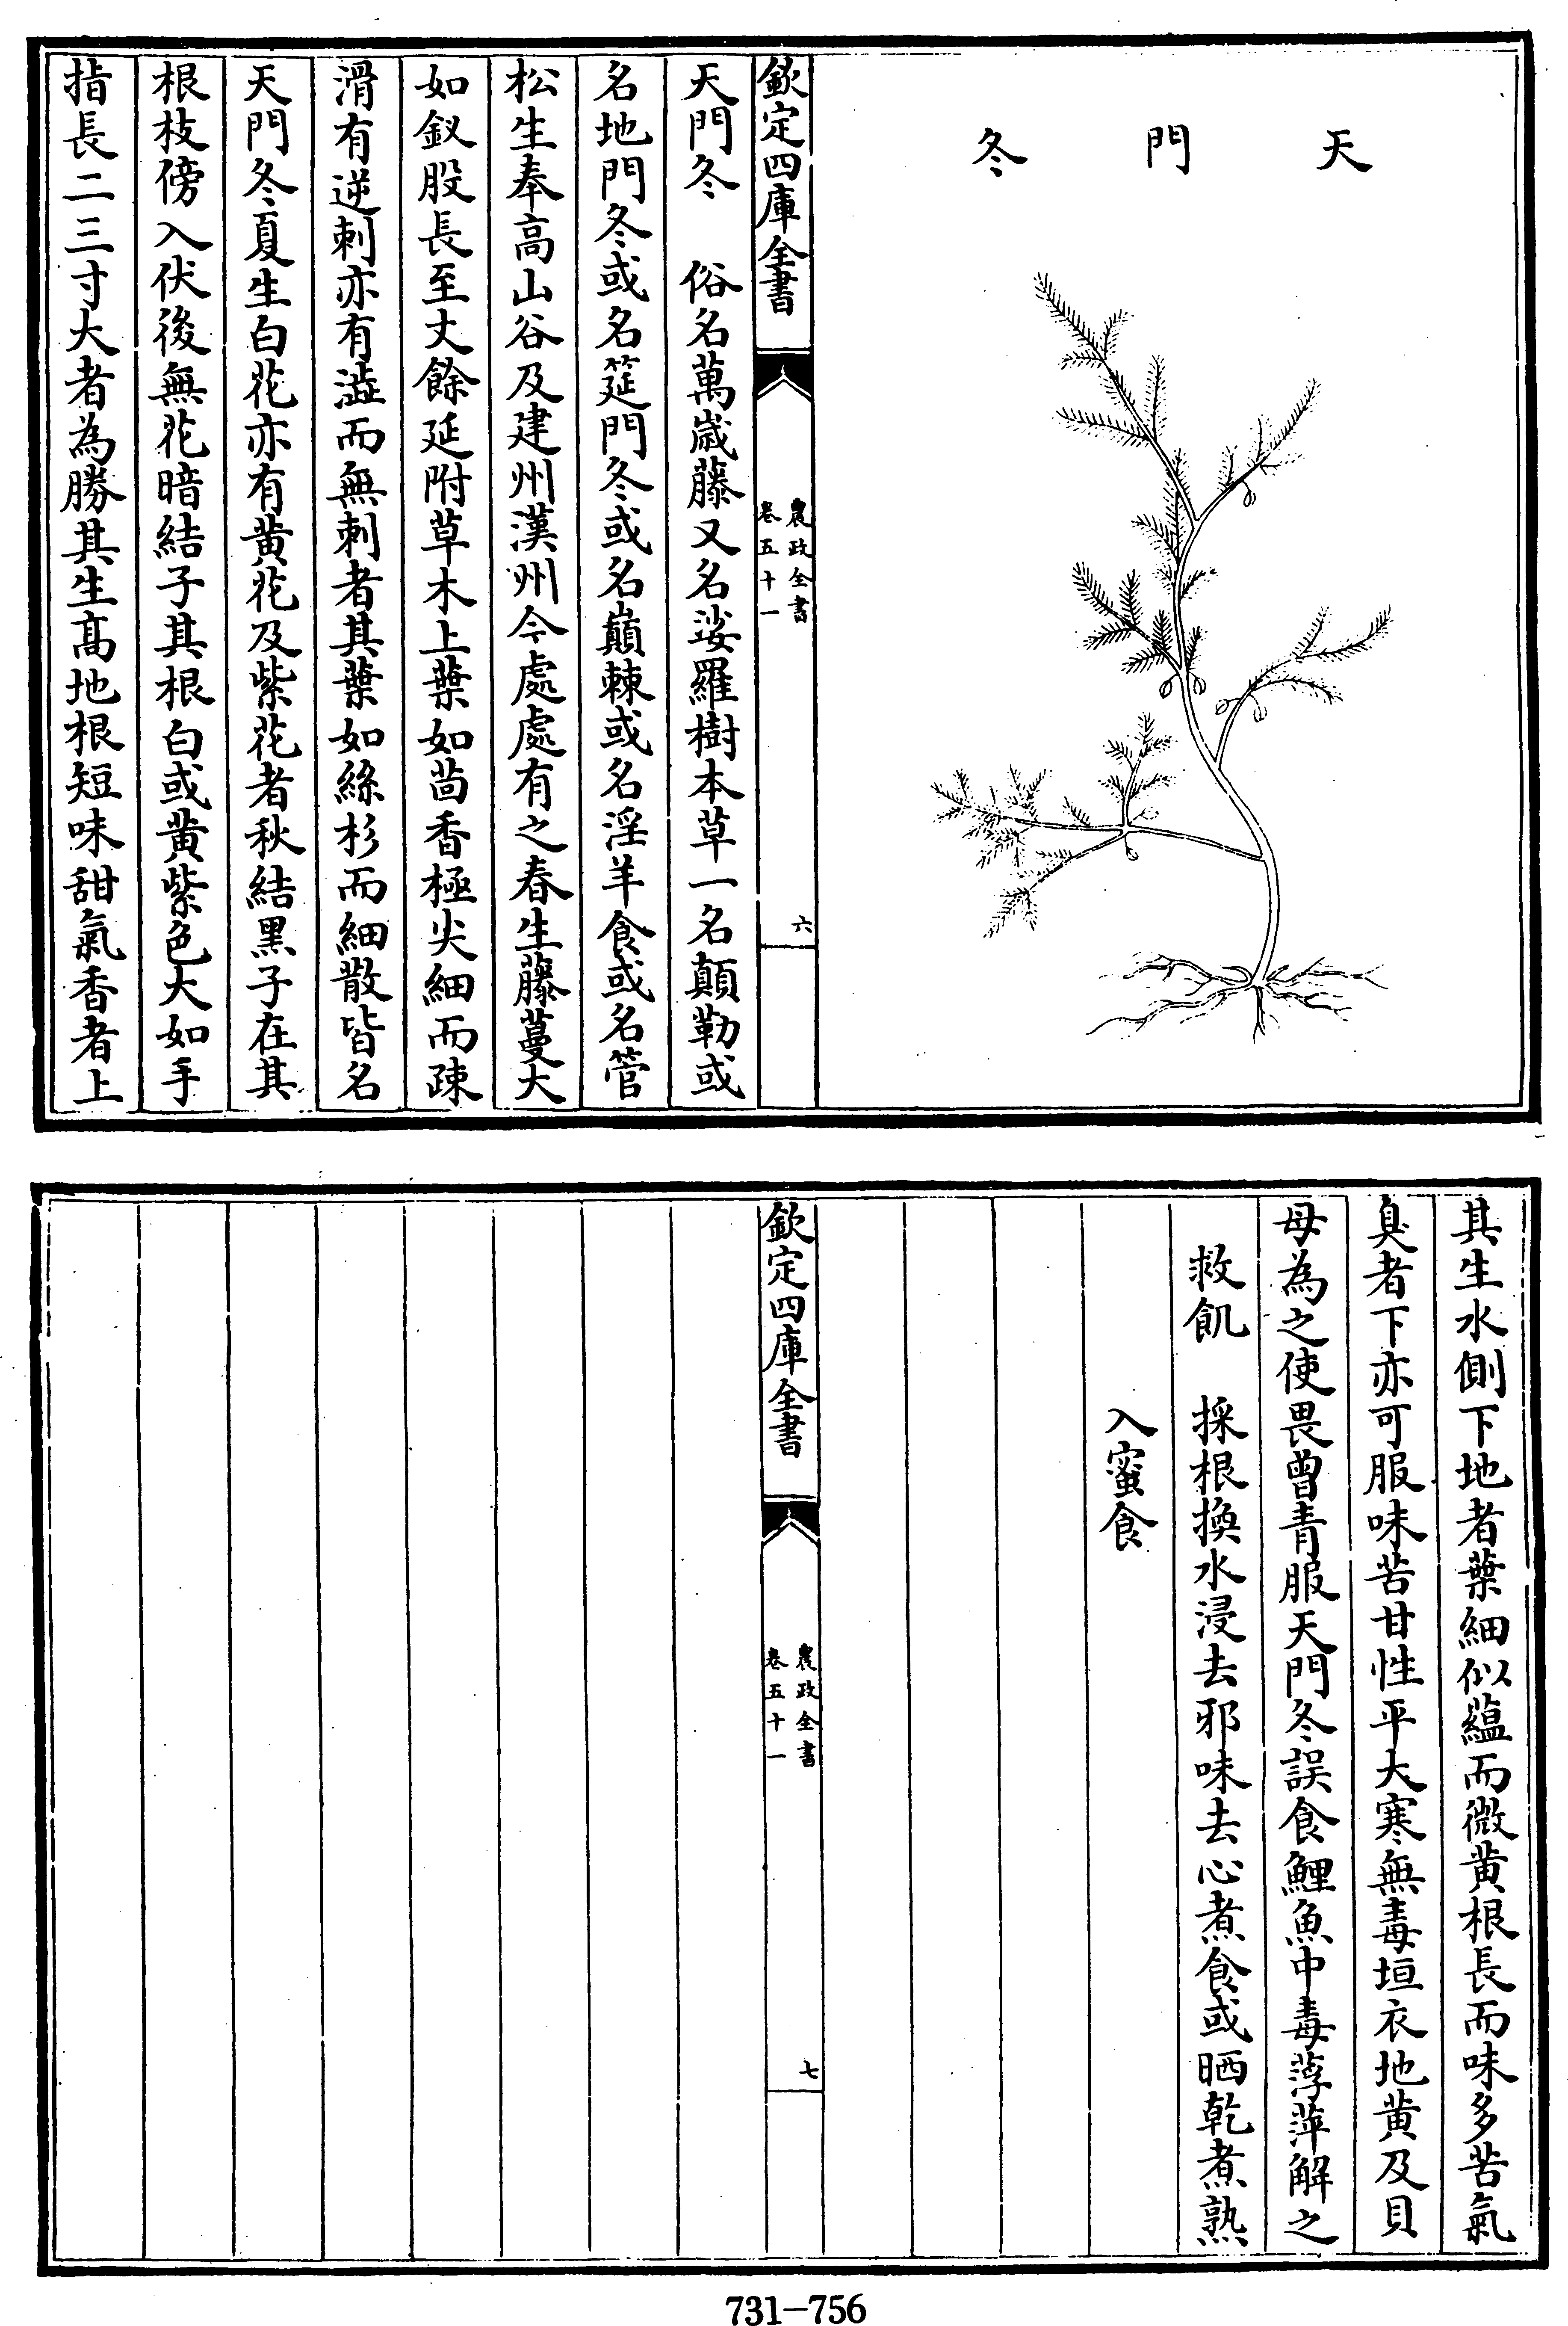 天門冬
欽定四庫全書
農政全書
卷五十一
六
天門冬　俗名萬歲藤又名娑羅樹本草一名顛勒或
名地門冬或名筵門冬或名巔棘或名淫羊食或名管
松生奉高山谷及建州漢州今處處有之春生藤蔓大
如釵股長至丈餘延附草木上葉如茴香極尖細而疎
滑有逆刺亦有澁而無刺者其葉如絲杉而細散皆名
天門冬夏生白花亦有黄花及紫花者秋結黑子在其
根枝傍入伏後無花暗結子其根白或黄紫色大如手
指長二三寸大者為勝其生高地根短味甜氣香者上
其生水側下地者葉細似蘊而微黄根長而味多苦氣
臭者下亦可服味苦甘性平大寒無毒垣衣地黄及貝
母為之使畏曾青服天門冬誤食鯉魚中毒莩萍解之
救飢　採根換水浸去邪味去心煮食或晒乾煮熟
入蜜食
欽定四庫全書
農政全書
卷五十一
七
731-756